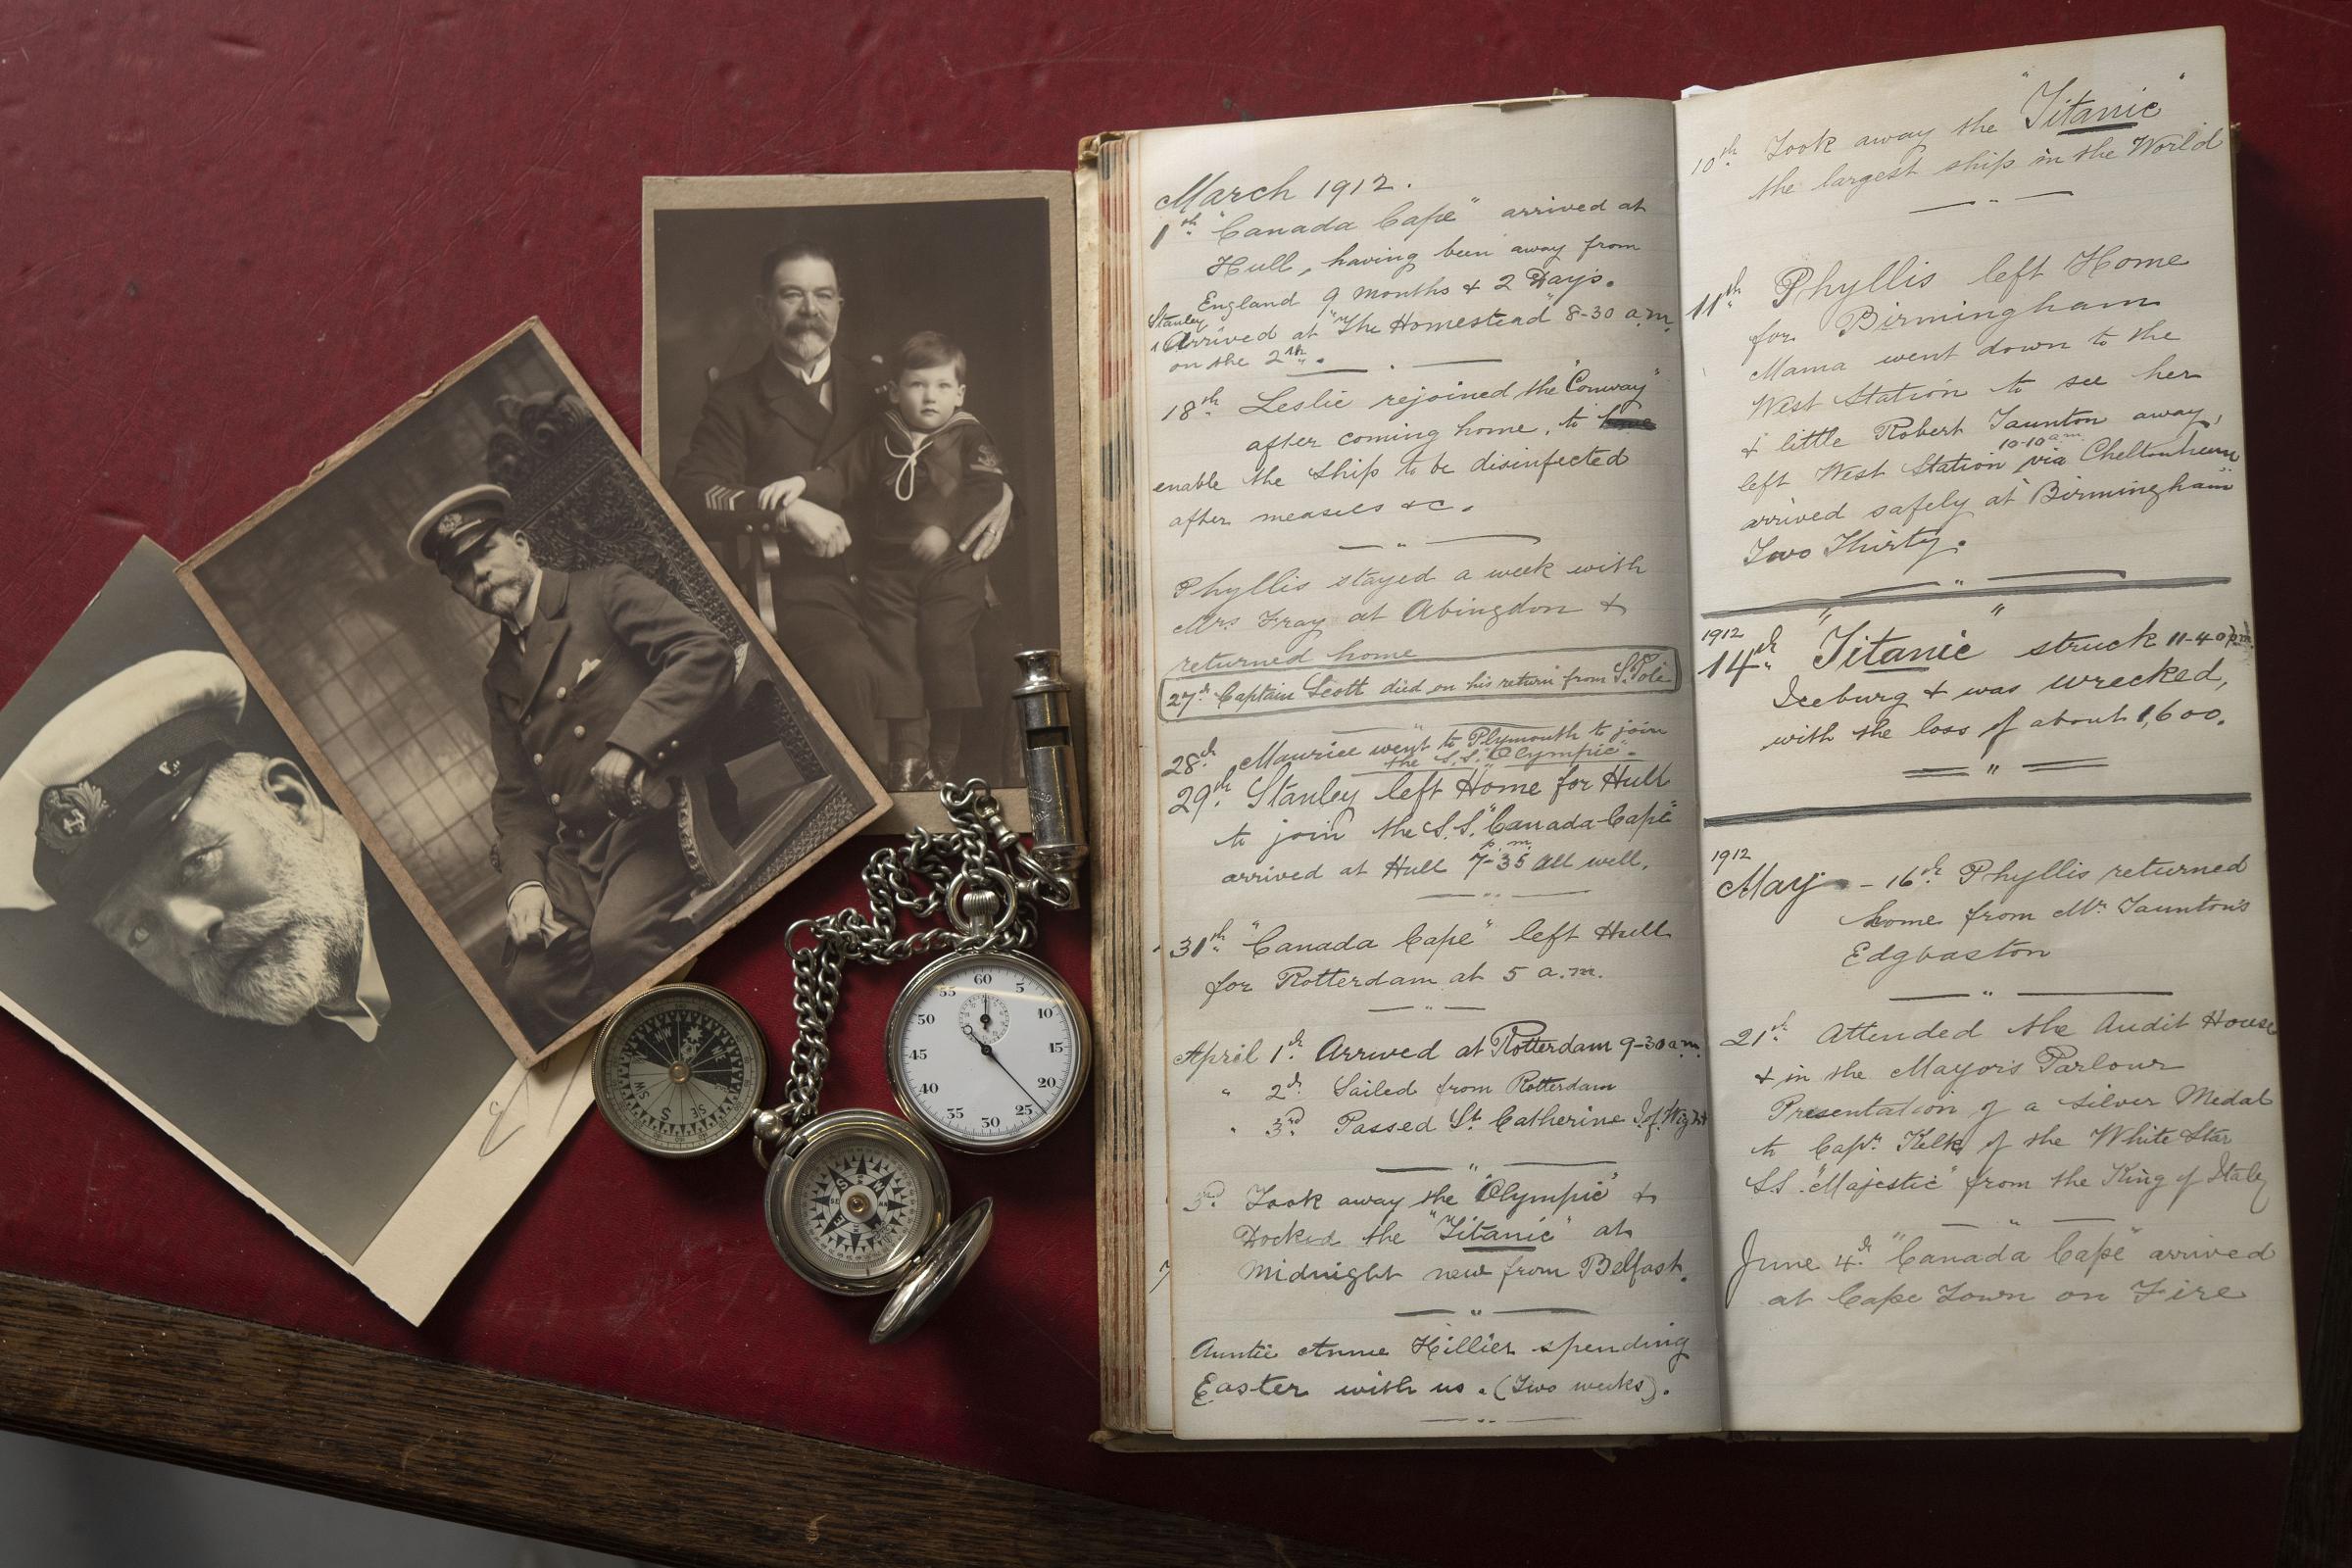 March 1912.
1st "Canada Cape" arrived at
Hull, having been away from
England 9 months & 2 Days.
Stanley
Arrived at "The Homestead" 8-30 a.m.
on the 2nd.
18th Leslie rejoined the "Conway"
after coming home, to
enable the ship to be disinfected
after measels &c.
Phyllis stayed a week with
Mrs Fray at Abingdon &
returned home
27th Captain Scott died on his return from S. Pole
28th Maurice went to Plymouth to join
the S.S. "Olympic".
29th Stanley left Home for Hull
to join the S.S. "Canada-Cape"
p.m.
arrived at Hull 7-35 All well.
31th "Canada Cape" left Hull
for Rotterdam at 5 a.m.
April 1th Arrived at Rotterdam 9-30 a.m.
" 2d Sailed from Rotterdam
" 3rd Passed St Catherine I. of Wight
3rd Took away the "Olympic" &
Docked the "Titanic" at
Midnight new from Belfast.
Auntie Annie Hillier spending
Easter with us. (Two weeks).
10th Took away the "Titanic"
the largest ship in the World
11th Phyllis left Home
for Birmingham
Mama went down to the
West Station to see her
& little Robert Taunton away,
10-10 a.m.
left West Station via Cheltenham
arrived safely at Birmingham
Two Thirty.
1912
14th "Titanic" struck 11-40 p.m.
Iceburg & was wrecked,
with the loss of about 1,600.
1912
May - 16th Phyllis returned
home from Mr Taunton's
Edgbaston
21st Attended the Audit House
& in the Mayor's Parlour
Presentation of a Silver Medal
to Capt. Kelk of the White Star
S.S. "Majestic" from the King of Italy
June 4th "Canada Cape" arrived
at Cape Town on Fire
60
5
10
15
20
25
30
35
40
45
50
55
NW
SW
S
SE
S
W